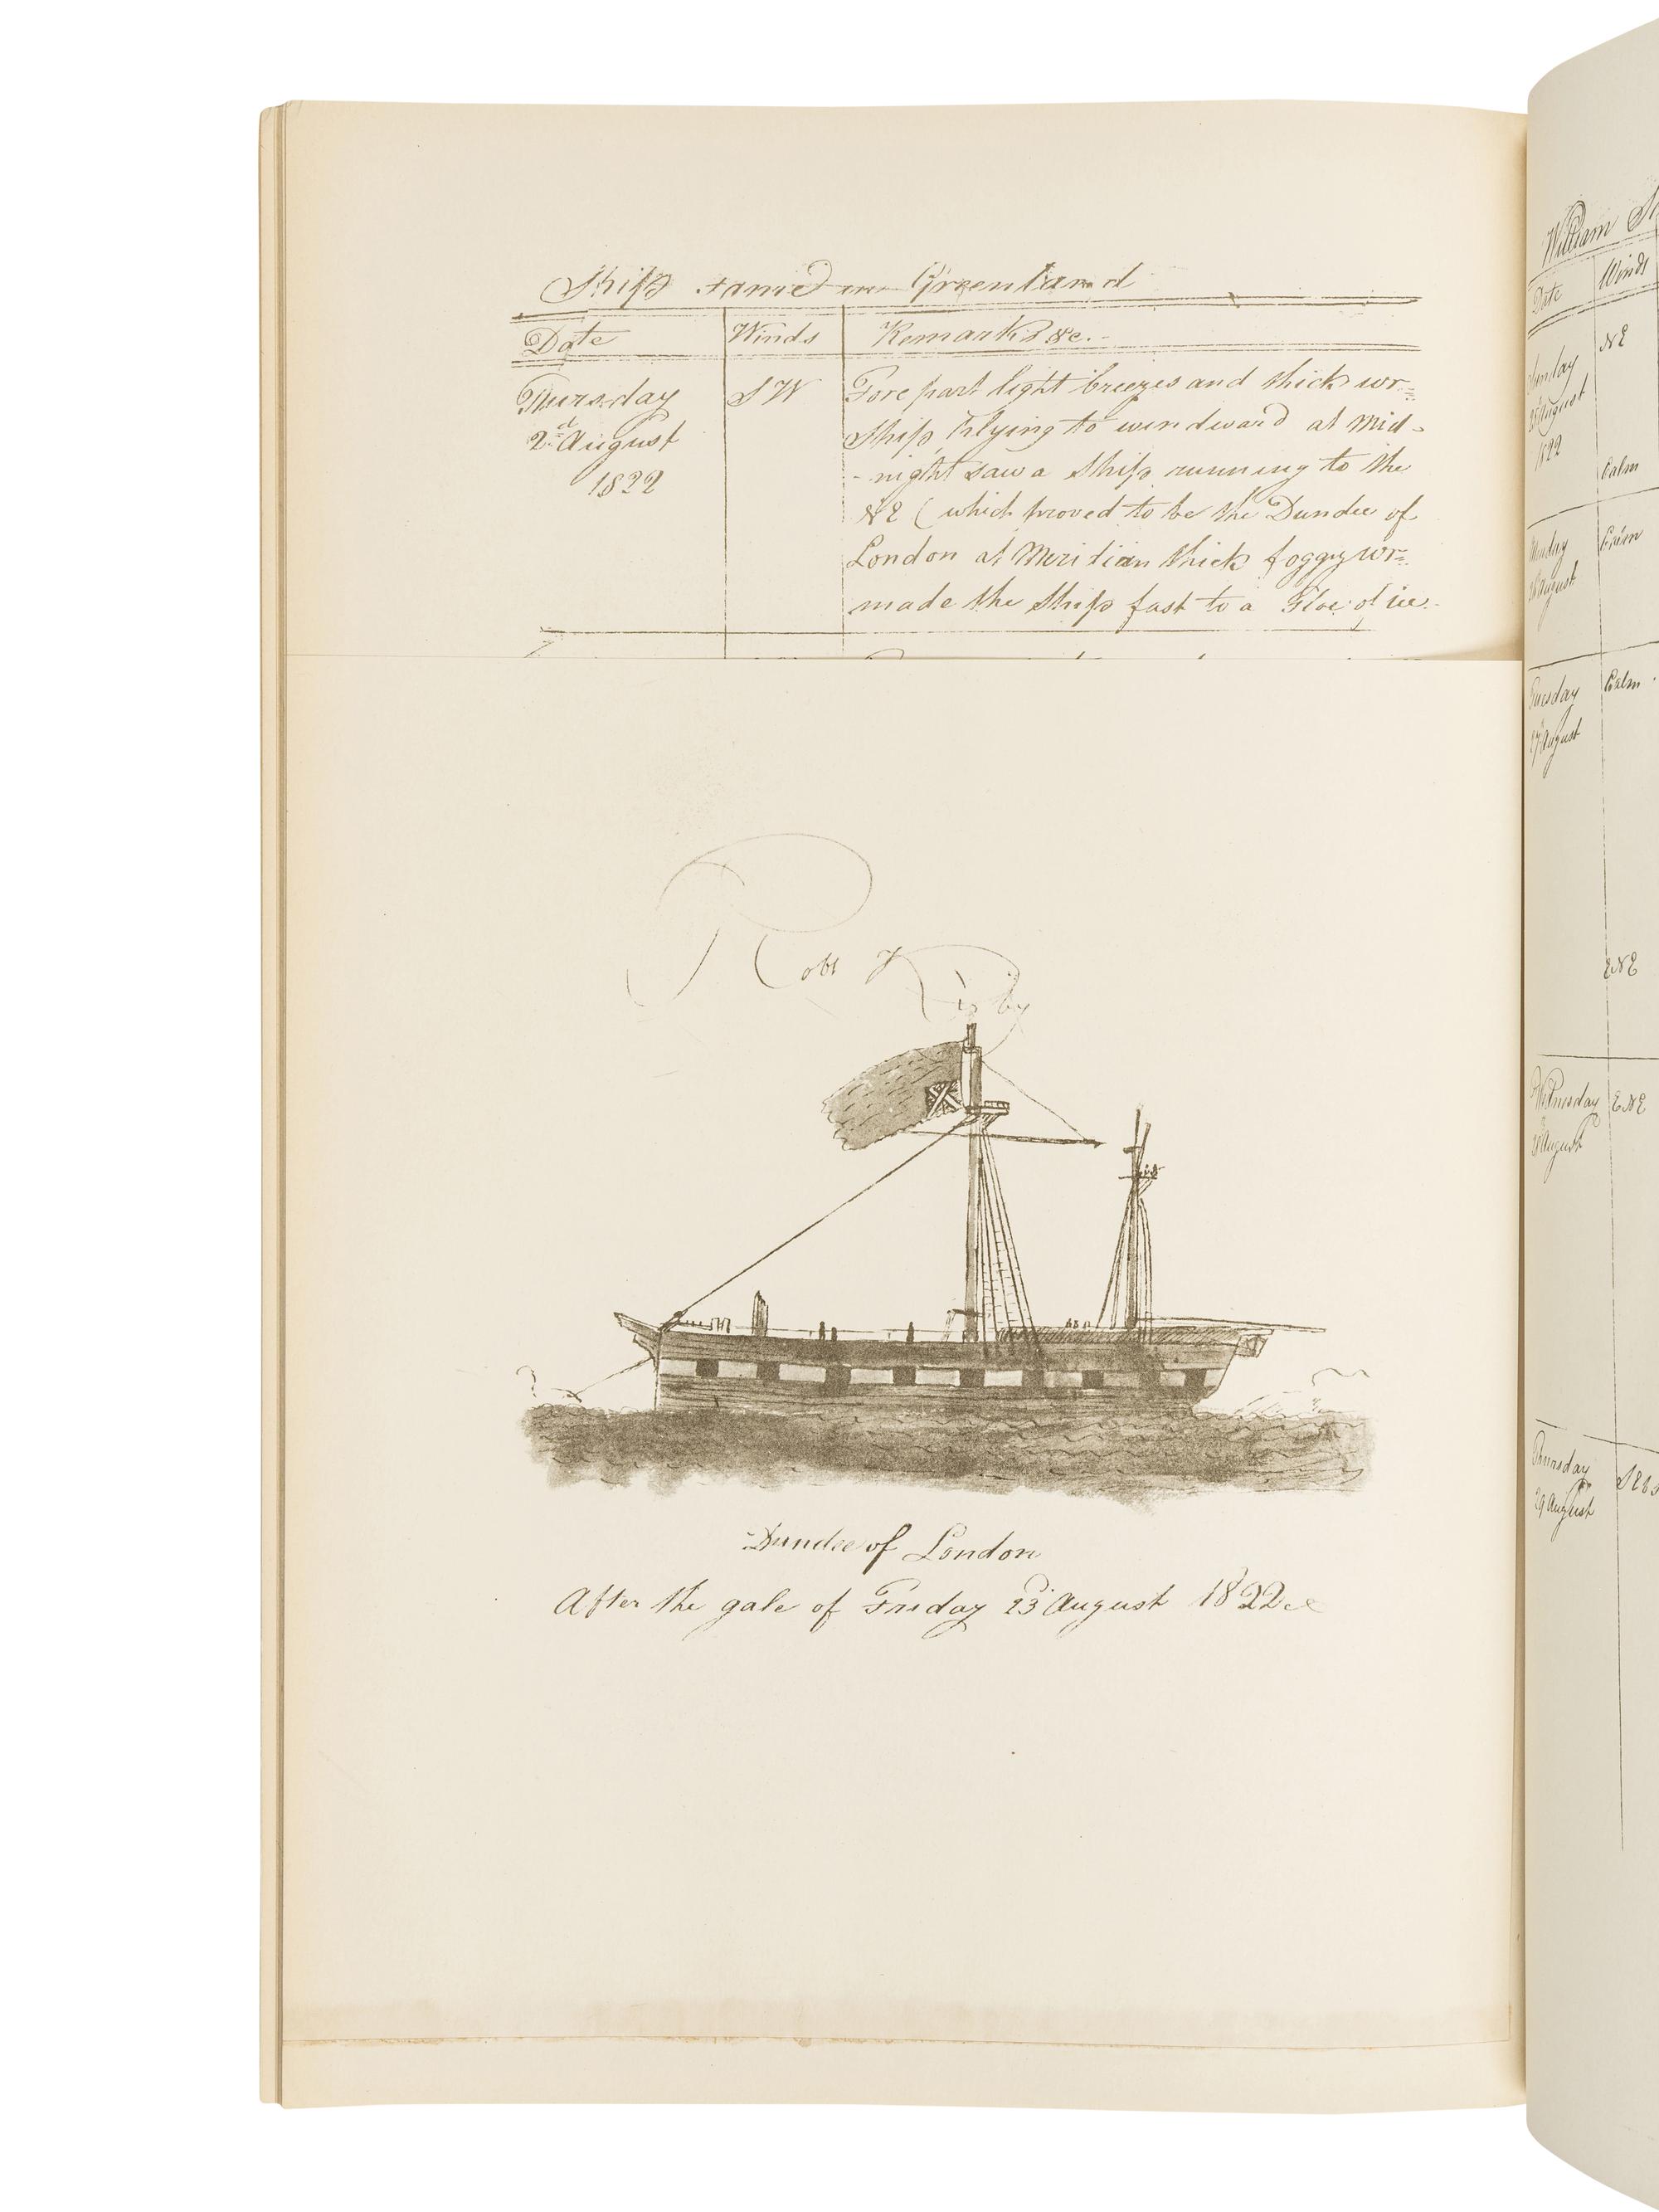 Ship Jane in Greenland
Date Winds Remarks &c.
Thursday SW Fore part light breezes and thick wr
2d August Ship Plying to windward at Mid-
1822 -night saw a Ship running to the
NE (which proved to be the Dundee of
London at Meridian thick foggy wr
made the Ship fast to a Floe of ice
Robt
Dundee of London
After the gale of Friday 23 August 1822
William
Date Winds
Sunday NE
25 August
1822 Calm
Monday Calm
26 August
Tuesday Calm
27 August
ENE
Wednesday ENE
28 August
Thursday
29 August